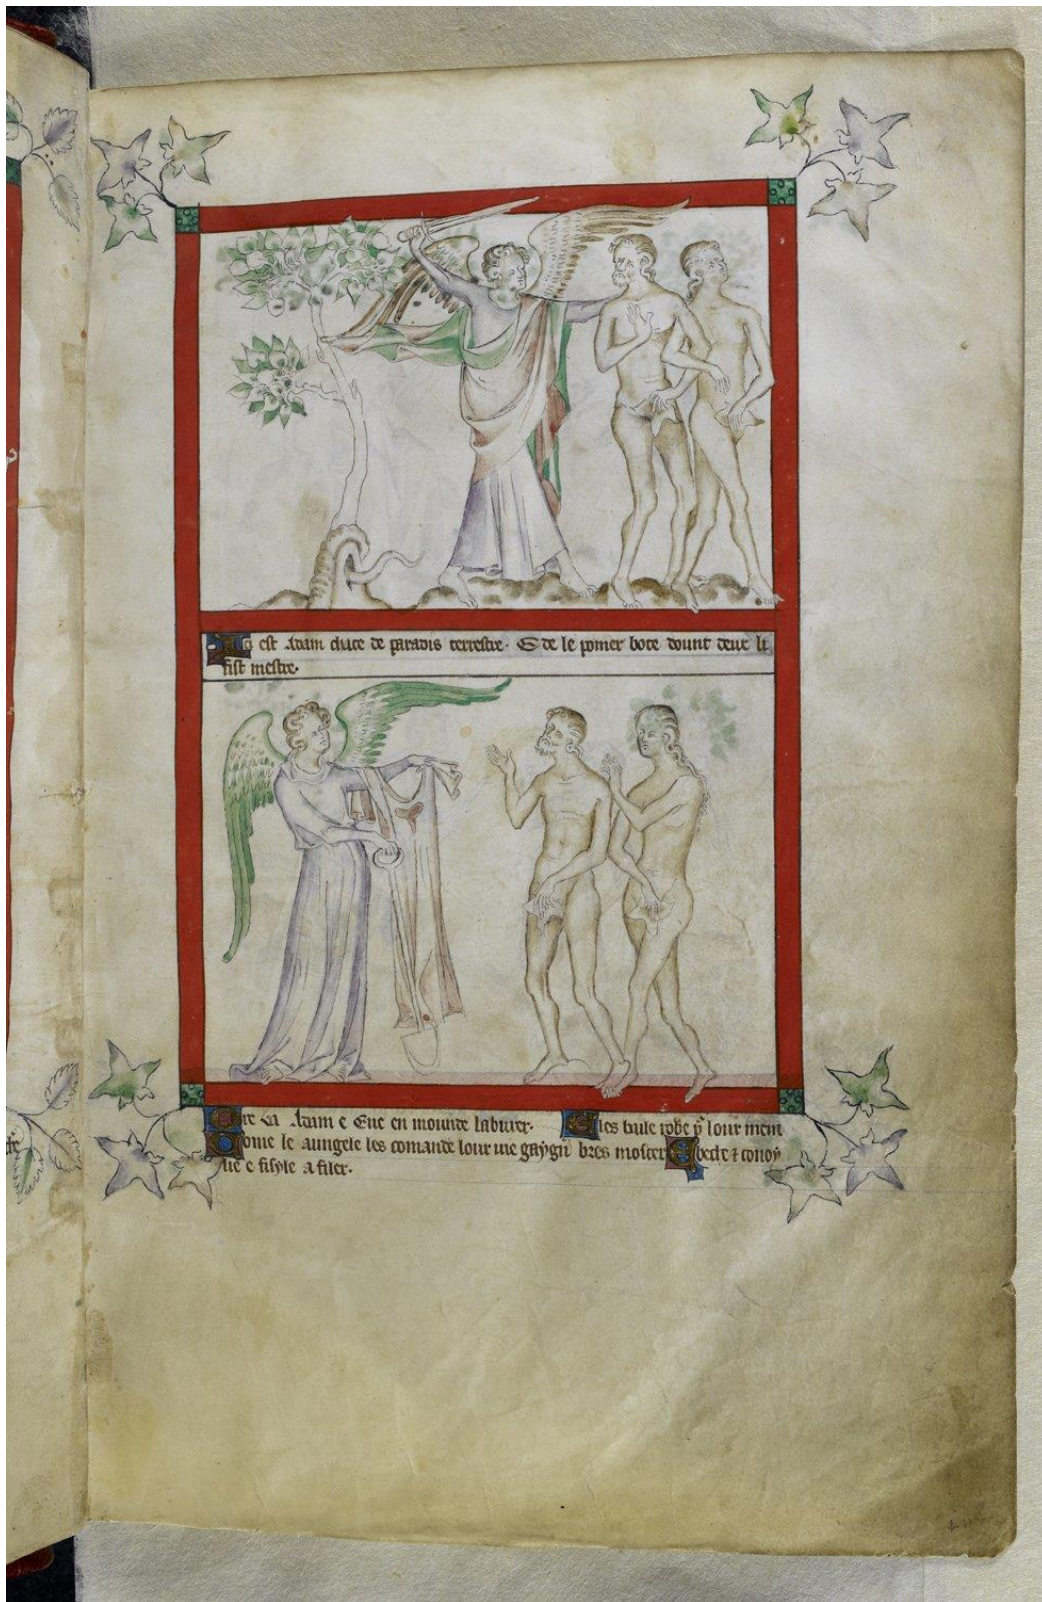 Ici est Adam chace de paradis terrestre. E de le pomer bote dount deux li
fist mestre.
Ore va Adam e Eve en mounde laburer. E les baile robe pr lour mem
Come le aungele les comande lour vie gaygnr bres moscer E beche & conoyl
ue e fisyle a filer.